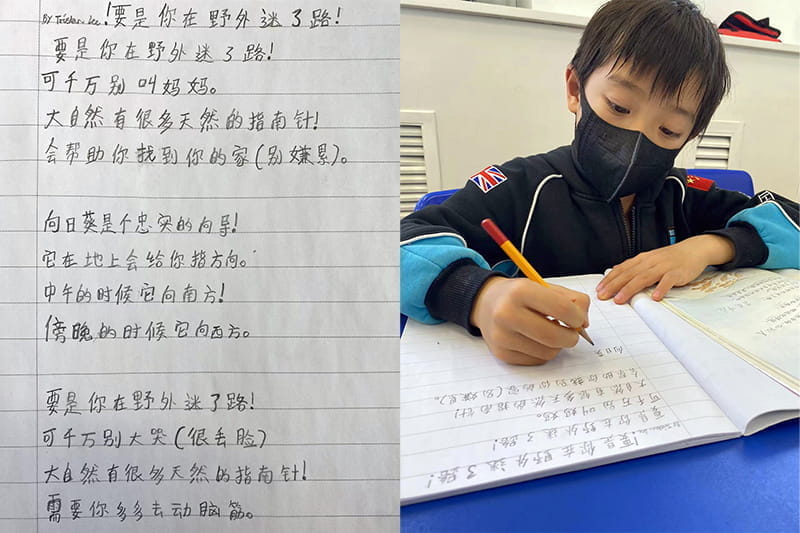 BY Tristan Lee !要是你在野外迷了路!
要是你在野外迷了路!
可千万别叫妈妈。
大自然有很多天然的指南针!
会帮助你找到你的家(别嫌累)。
向日葵是个忠实的向导!
它在地上会给你指方向。
中午的时候它向南方!
傍晚的时候它向西方。
要是你在野外迷了路!
可千万别大哭(很丢脸)
大自然有很多天然的指南针!
需要你多多去动脑筋。
要是你在野外迷了路!
要是你在野外迷了路!
可千万别叫妈妈。
大自然有很多天然的指南针!
会帮助你找到你的家(别嫌累)。
向日